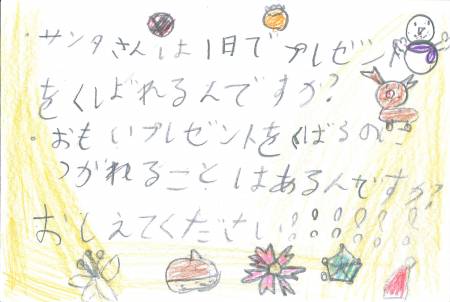 ・サンタさんは1日でプレゼント
をくばれるんですか?
・おもいプレゼントをくばるのに
つかれることはあるんですか?
おしえてください!!!!!!